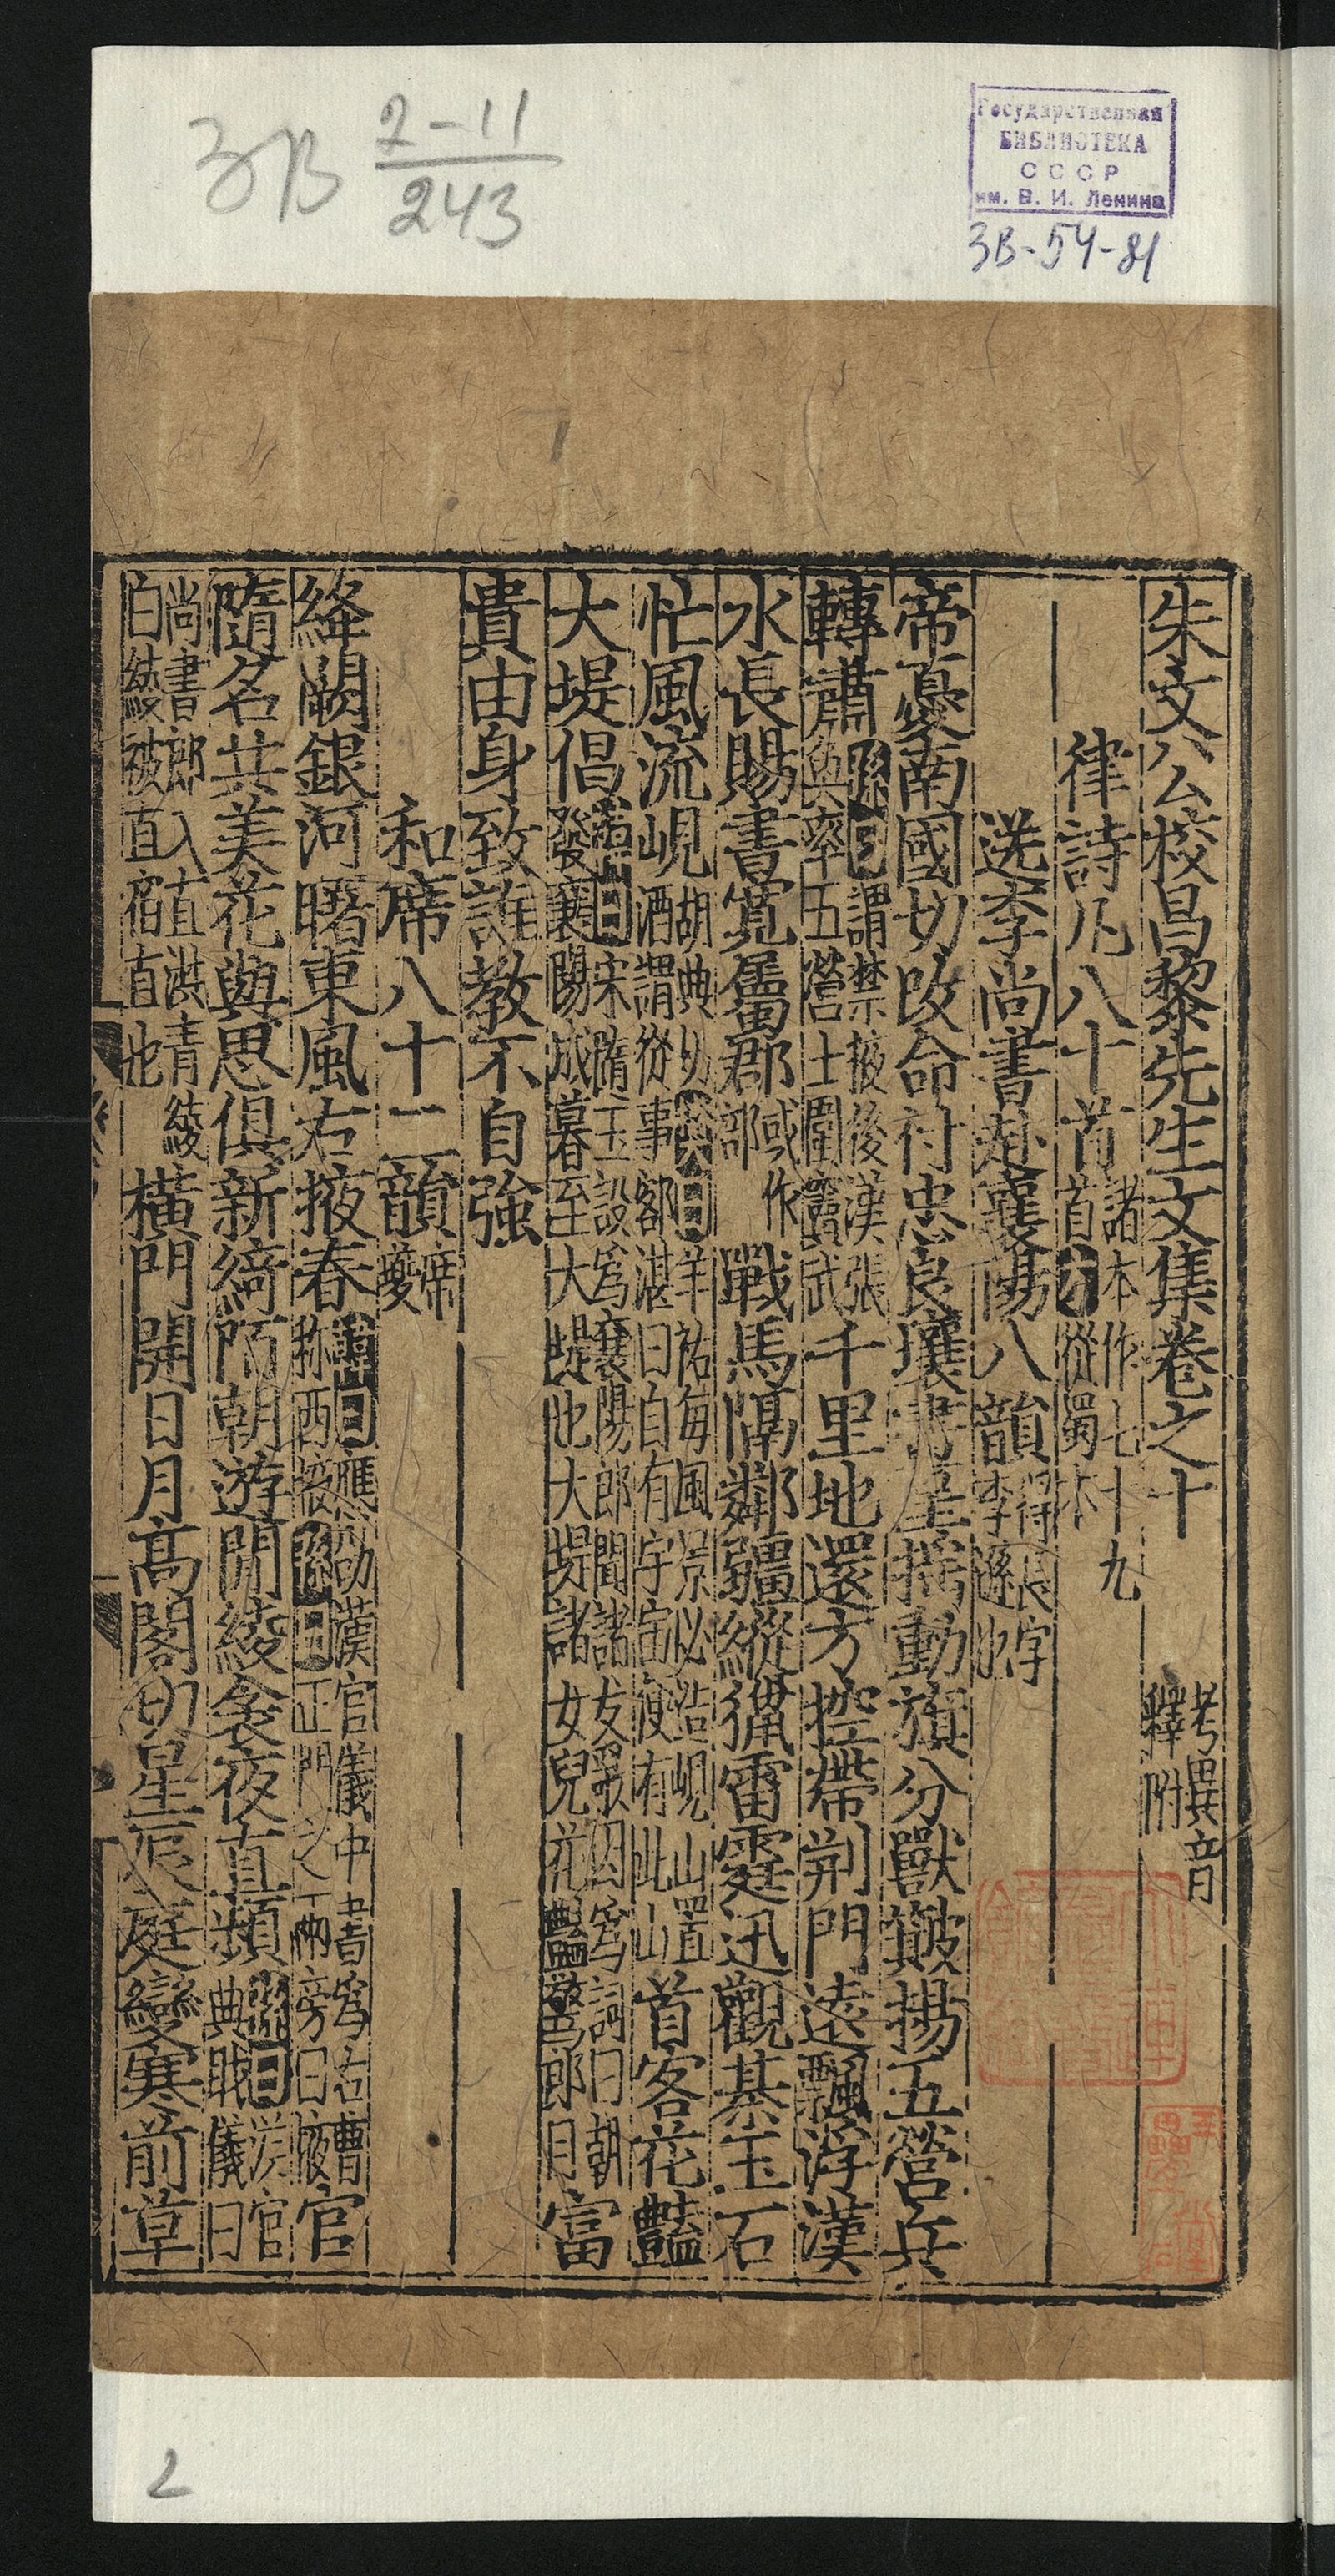 ЗВ 2-11
243
Государственная
БИБЛИОТЕКА
СССР
им. В. И. Ленина
ЗВ-54-81
朱文公校昌黎先生文集卷之十 考異音釋附
律詩凡八十首 諸本作七十九首從蜀本
送李尚書赴襄陽八韻 得長字李遜也
帝憂南國切改命付忠良壤畫星搖動旗分獸簸揚五營兵
轉肅 孫曰謂禁掖後漢張奐率五營士圍竇武 千里地還方控帶荆門遠飄浮漢
水長賜書寛屬郡 或作部 戰馬隔鄰疆縱獵雷霆迅觀棊玉石
忙風流峴 胡典切 曰羊祜毎風景必造峴山置酒謂從事鄒湛曰自有宇宙便有此山 首客花豔
大堤倡 曰宋隋王誕爲襄陽郎聞諸女歌因爲詞曰朝發襄陽城暮至大堤也大堤諸女兒花豔驚郎目 富
貴由身致誰教不自強
和席八十二韻 席夔
絳闕銀河曙東風右掖春 曰應劭漢官儀中書爲右曹稱西掖 孫曰正門之兩旁曰掖 官
隨名共美花與思俱新綺陌朝遊閒綾衾夜直頻 孫曰漢官典職儀曰
尚書郎入直洪青綾白綾被直宿直也 橫門開日月高閣切星辰庭變寒前草
2